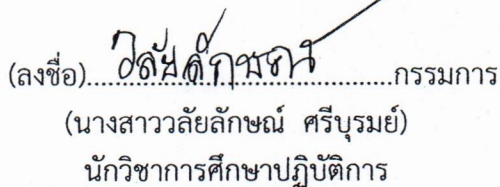 (ลงชื่อ)....วลัยลักษณ์....กรรมการ
(นางสาววลัยลักษณ์ ศรีบุรมย์)
นักวิชาการศึกษาปฏิบัติการ